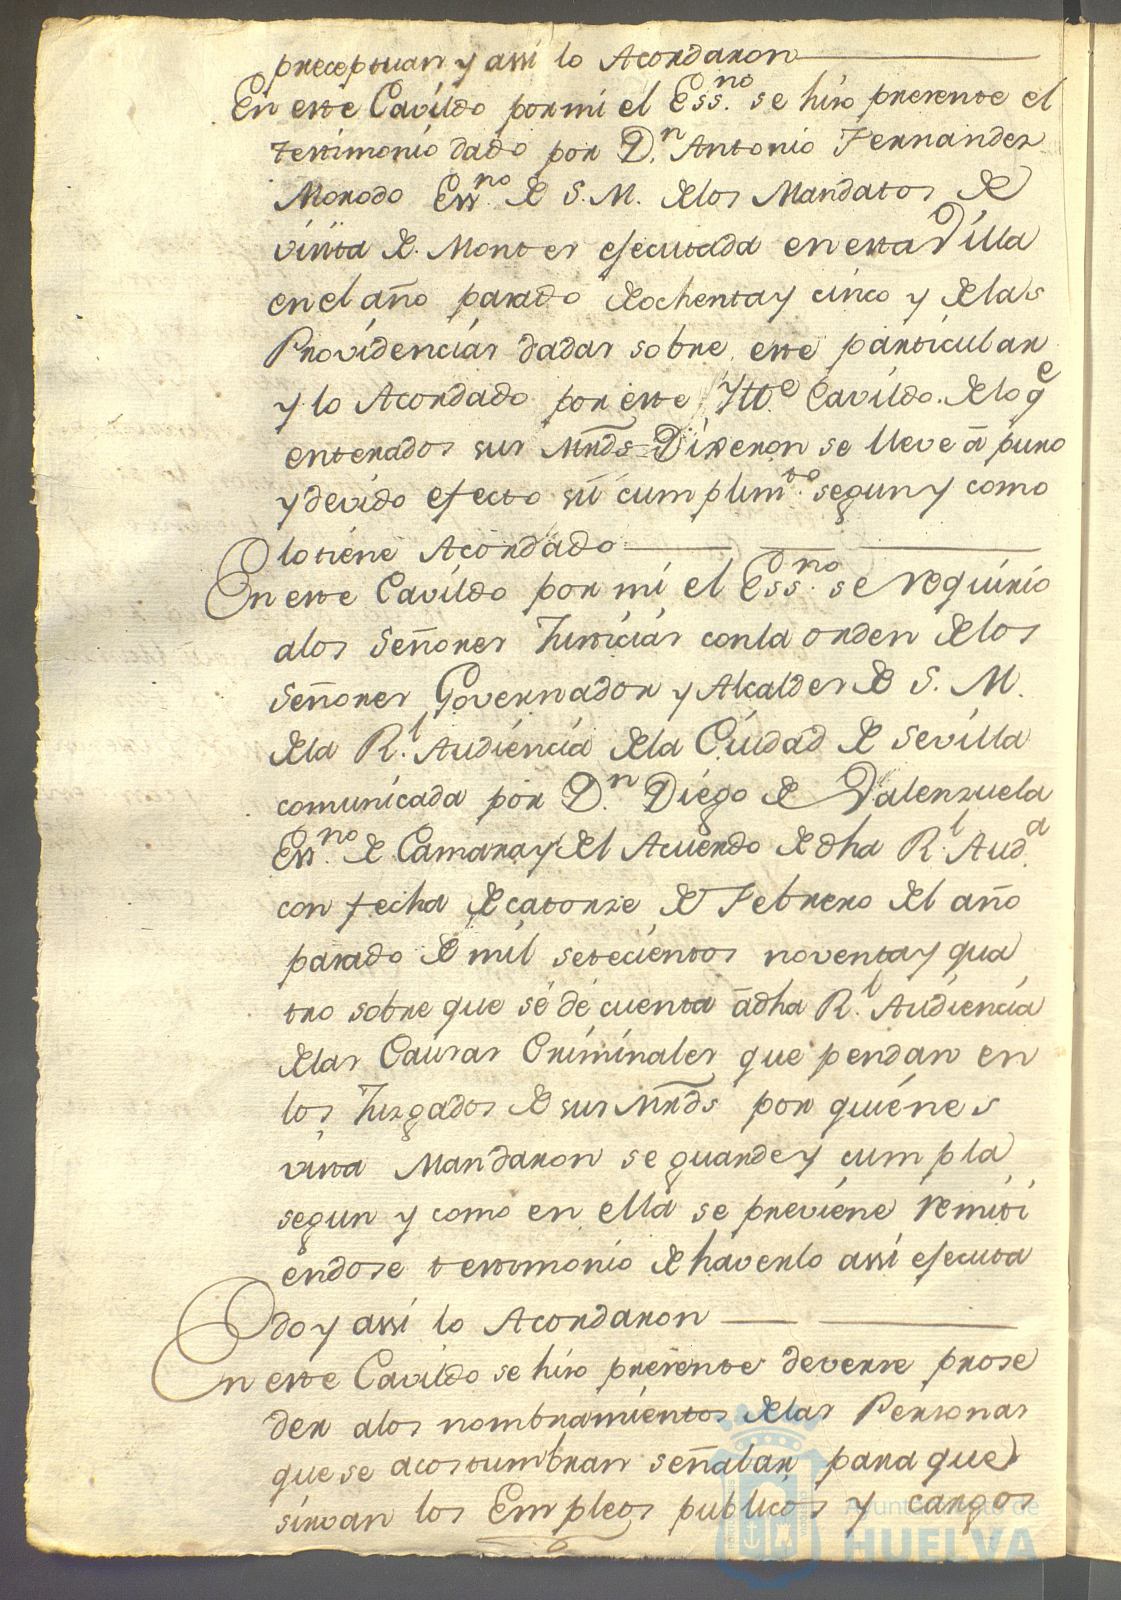 preceptuan y assi lo Acordaron
En este Cavildo por mi el Ess.no se hizo presente el
testimonio dado por D.n Antonio Fernandez
Morodo Ess.no de S. M. de los Mandatos de
visita de Montes ejecutada en esta Villa
en el año pasado de ochenta y cinco y de las
Providencias dadas sobre este particular
y lo Acordado por este Ytt.e Cavildo. de lo q.e
enterados sus Mrds Dixeron se lleve â puro
y devido efecto su cumplim.to segun y como
lo tiene Acordado
En este Cavildo por mi el Ess.no se requirio
a los Señores Justicias con la orden de los
Señores Governador y Alcaldes de S. M.
de la R.l Audiencia de la Ciudad de Sevilla
comunicada por D.n Diego de Valenzuela
Ess.no de Camara y del Acuerdo de dha R.l Aud.a
con fecha de catorze de Febrero del año
pasado de mil setecientos noventa y qua
tro sobre que se dé cuenta â dha R.l Audiencia
de las Causas Criminales que pendan en
los Juzgados de sus Mrds por quienes
vista Mandaron se guarde y cumpla
segun y como en ella se previene remiti
endose testimonio de haverlo assi ejecuta
do y assi lo Acordaron
En este Cavildo se hizo presente deverse prose
der a los nombramientos de las Personas
que se acostumbran señalar para que
sirvan los Empleos publicos y cargos
Ayuntamiento de
HUELVA